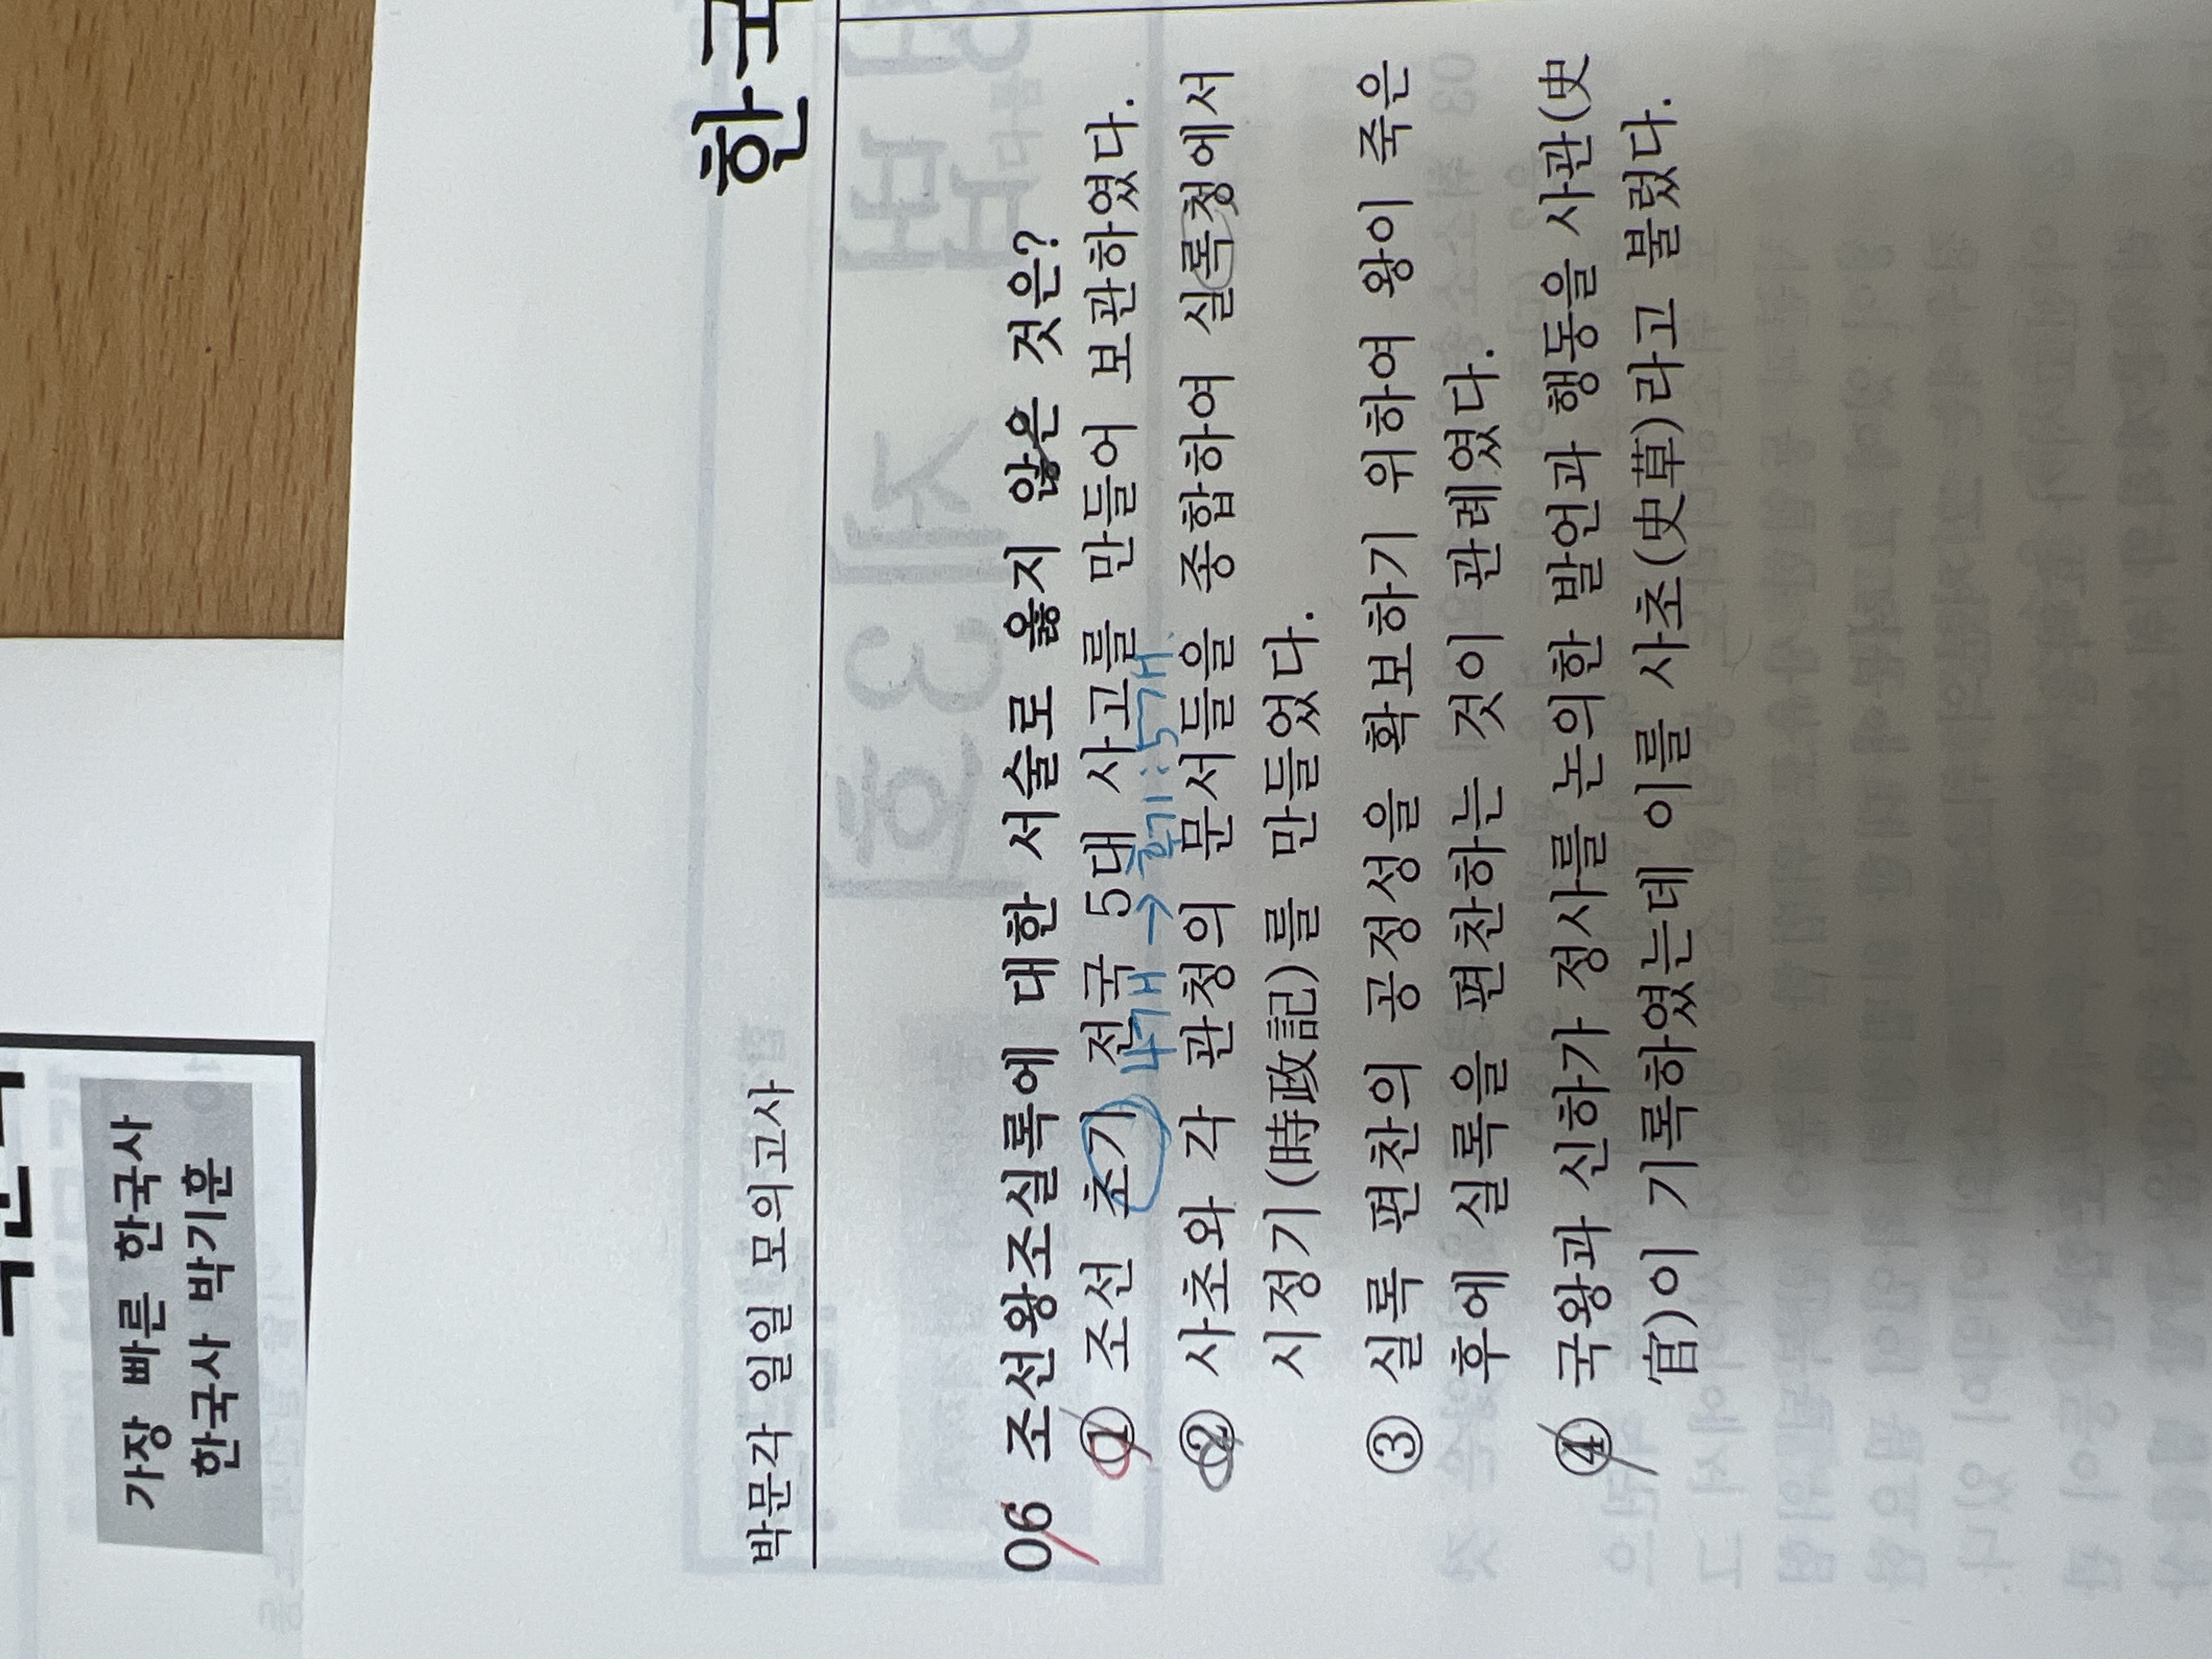 가장 빠른 한국사
한국사 박기훈
박문각 일일 모의고사
06 조선왕조실록에 대한 서술로 옳지 않은 것은?
① 조선 초기 전국 5대 사고를 만들어 보관하였다.
4개 → 후기 : 5개
② 사초와 각 관청의 문서들을 종합하여 실록청에서
시정기(時政記)를 만들었다.
③ 실록 편찬의 공정성을 확보하기 위하여 왕이 죽은
후에 실록을 편찬하는 것이 관례였다.
④ 국왕과 신하가 정사를 논의한 발언과 행동을 사관(史
官)이 기록하였는데 이를 사초(史草)라고 불렀다.